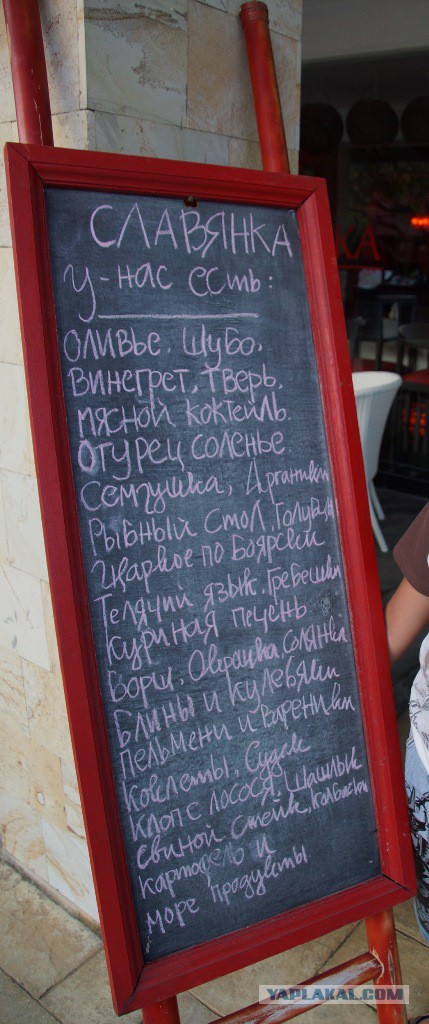 СЛАВЯНКА
у-нас есть:
оливье, шубо,
винегрет, тверь,
мясной коктейль.
Огурец соленье
Семгушка, Драники
Рыбный стол, Голубцы
Жаркое по Боярски
Телячий язык, Гребешки
Куриная печень
Борщ, Окрошка, солянка
Блины и Кулебяки
Пельмени и Вареники
Котлеты, Судак
Клопс лосося, Шашлык
свиной стейк, колбаски
картофель и
море продукты.
YAPLAKAL.COM